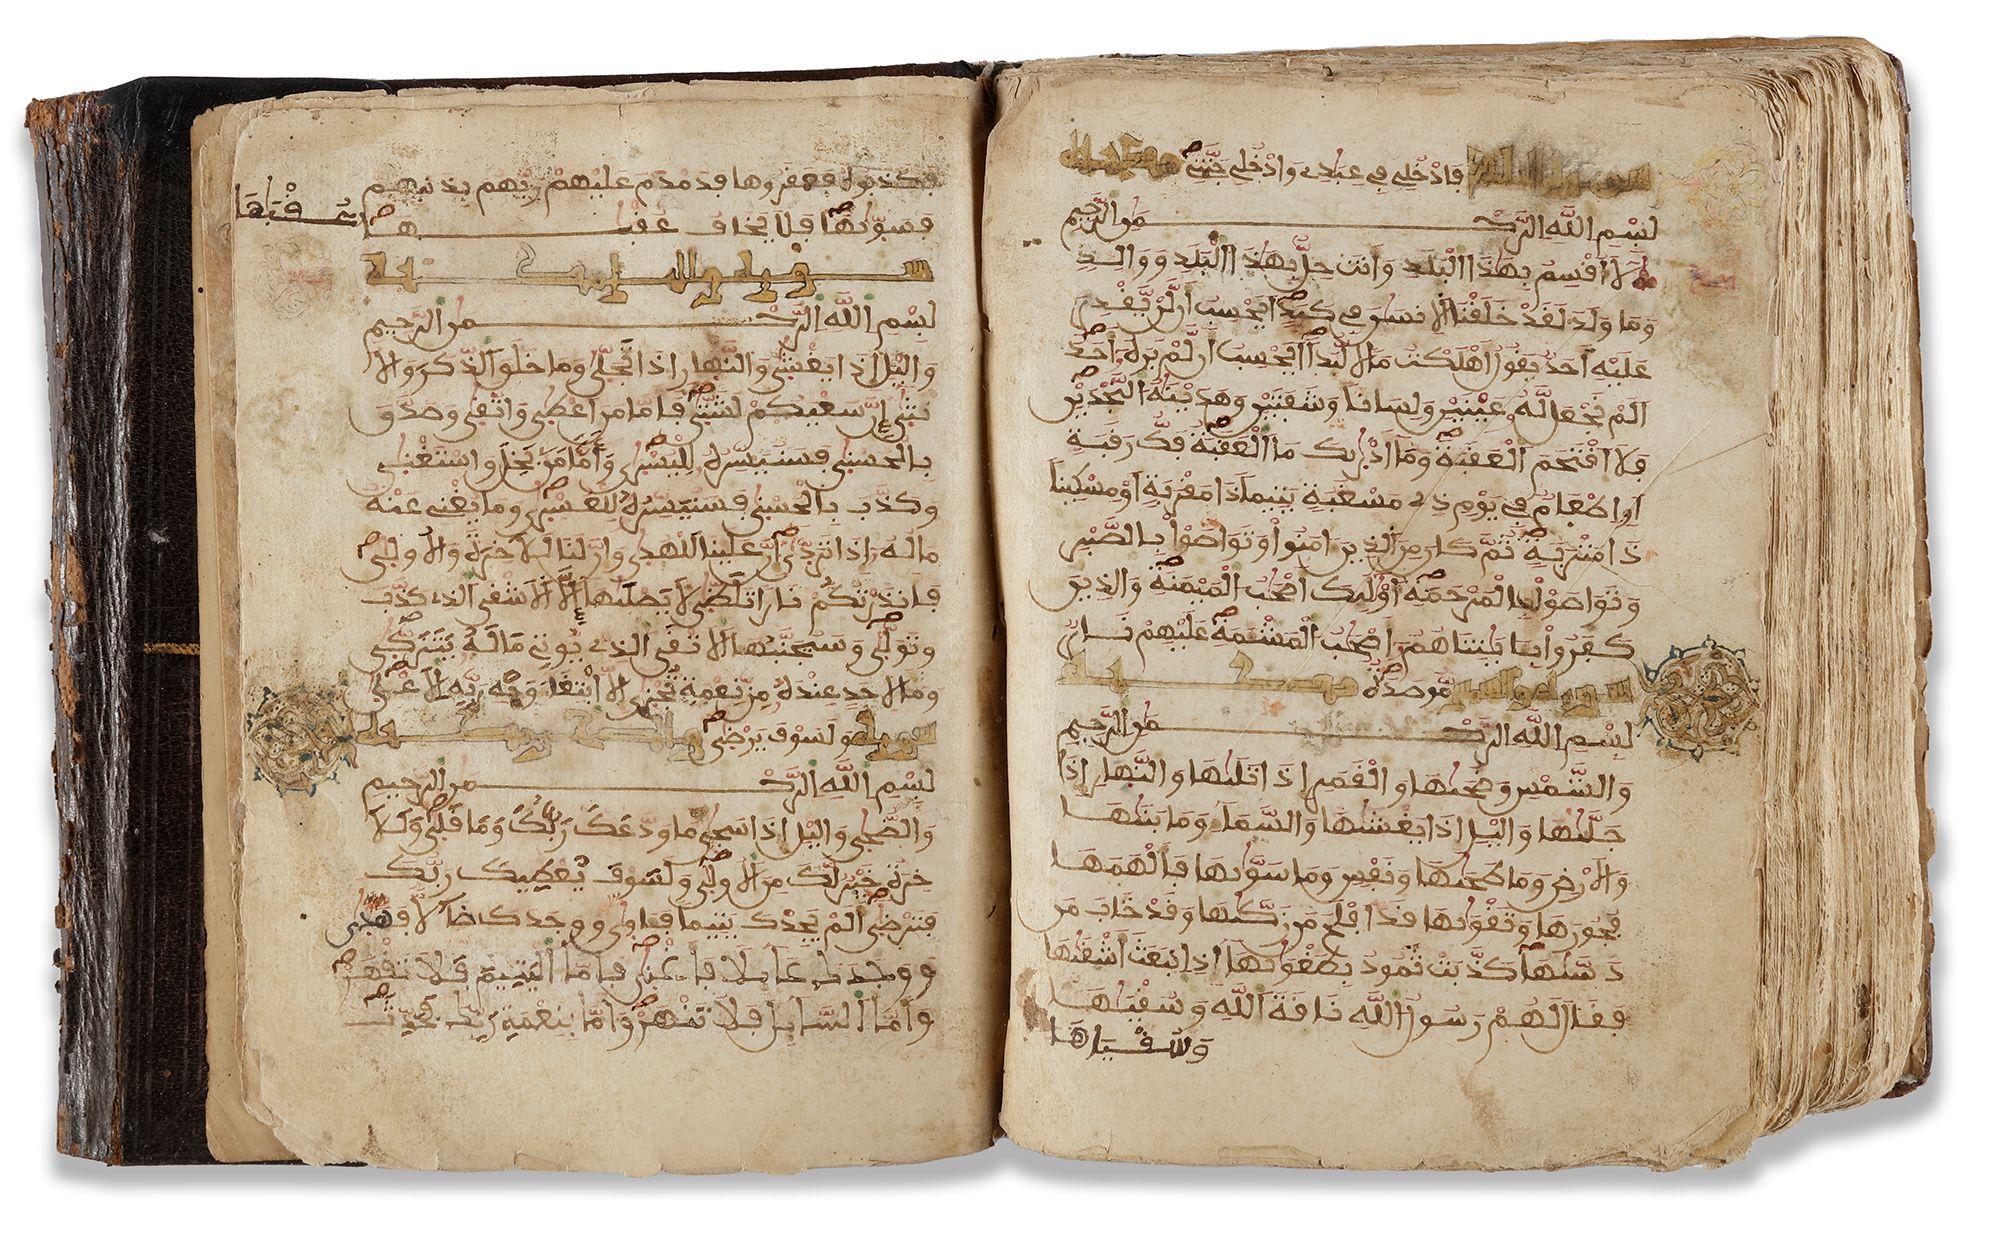 سورة البلد فادخلي في عبدي وادخلي جنتي مكية
بسم الله الرحمن الرحيم
لا أقسم بهذا البلد وأنت حل بهذا البلد ووالد
وما ولد لقد خلقنا الانسن في كبد ايحسب ان لن يقدر
عليه أحد يقول أهلكت مالا لبدا ايحسب ان لم يره أحد
الم نجعل له عينين ولسانا وشفتين وهدينه النجدين
فلا اقتحم العقبة وما أدريك ما العقبة فك رقبة
او اطعام في يوم ذي مسغبة يتيما ذا مقربة او مسكينا
ذا متربة ثم كان من الذين امنوا وتواصوا بالصبر
وتواصوا بالمرحمة أوليك أصحب الميمنة والذين
كفروا بايتنا هم أصحب المشمة عليهم نار
سورة والشمس موصدة مكية
بسم الله الرحمن الرحيم
والشمس وضحيها والقمر إذا تليها والنهار إذا
جليها واليل إذا يغشيها والسماء وما بنيها
والارض وما طحيها ونفس وما سويها فألهمها
فجورها وتقويها قد أفلح من زكيها وقد خاب من
دسيها كذبت ثمود بطغويها إذ انبعث أشقيها
فقال لهم رسول الله ناقة الله وسقيها
وسقياها
فكذبوه فعقروها فدمدم عليهم ربهم بذنبهم
فسويها فلا يخاف عقبها
عقباها
سورة واليل مكية
بسم الله الرحمن الرحيم
واليل إذا يغشى والنهار إذا تجلى وما خلق الذكر والا
نثى إن سعيكم لشتى فأما من أعطى واتقى وصدق
بالحسنى فسنيسره لليسرى وأما من بخل واستغنى
وكذب بالحسنى فسنيسره للعسرى وما يغني عنه
ماله إذا تردى إن علينا للهدى وإن لنا للاخرة والاولى
فأنذرتكم نارا تلظى لا يصليها إلا الاشقى الذي كذب
وتولى وسيجنبها الاتقى الذي يوتي ماله يتزكى
وما لاحد عنده من نعمة تجزى الا ابتغاء وجه ربه الاعلى
سورة ولسوف يرضى والضحى مكية
بسم الله الرحمن الرحيم
والضحى واليل إذا سجى ما ودعك ربك وما قلى وللا
خرة خير لك من الاولى ولسوف يعطيك ربك
فترضى الم يجدك يتيما فاوى ووجدك ضالا فهدى
ووجدك عايلا فاغنى فاما اليتيم فلا تقهر
واما السايل فلا تنهر واما بنعمة ربك فحدث